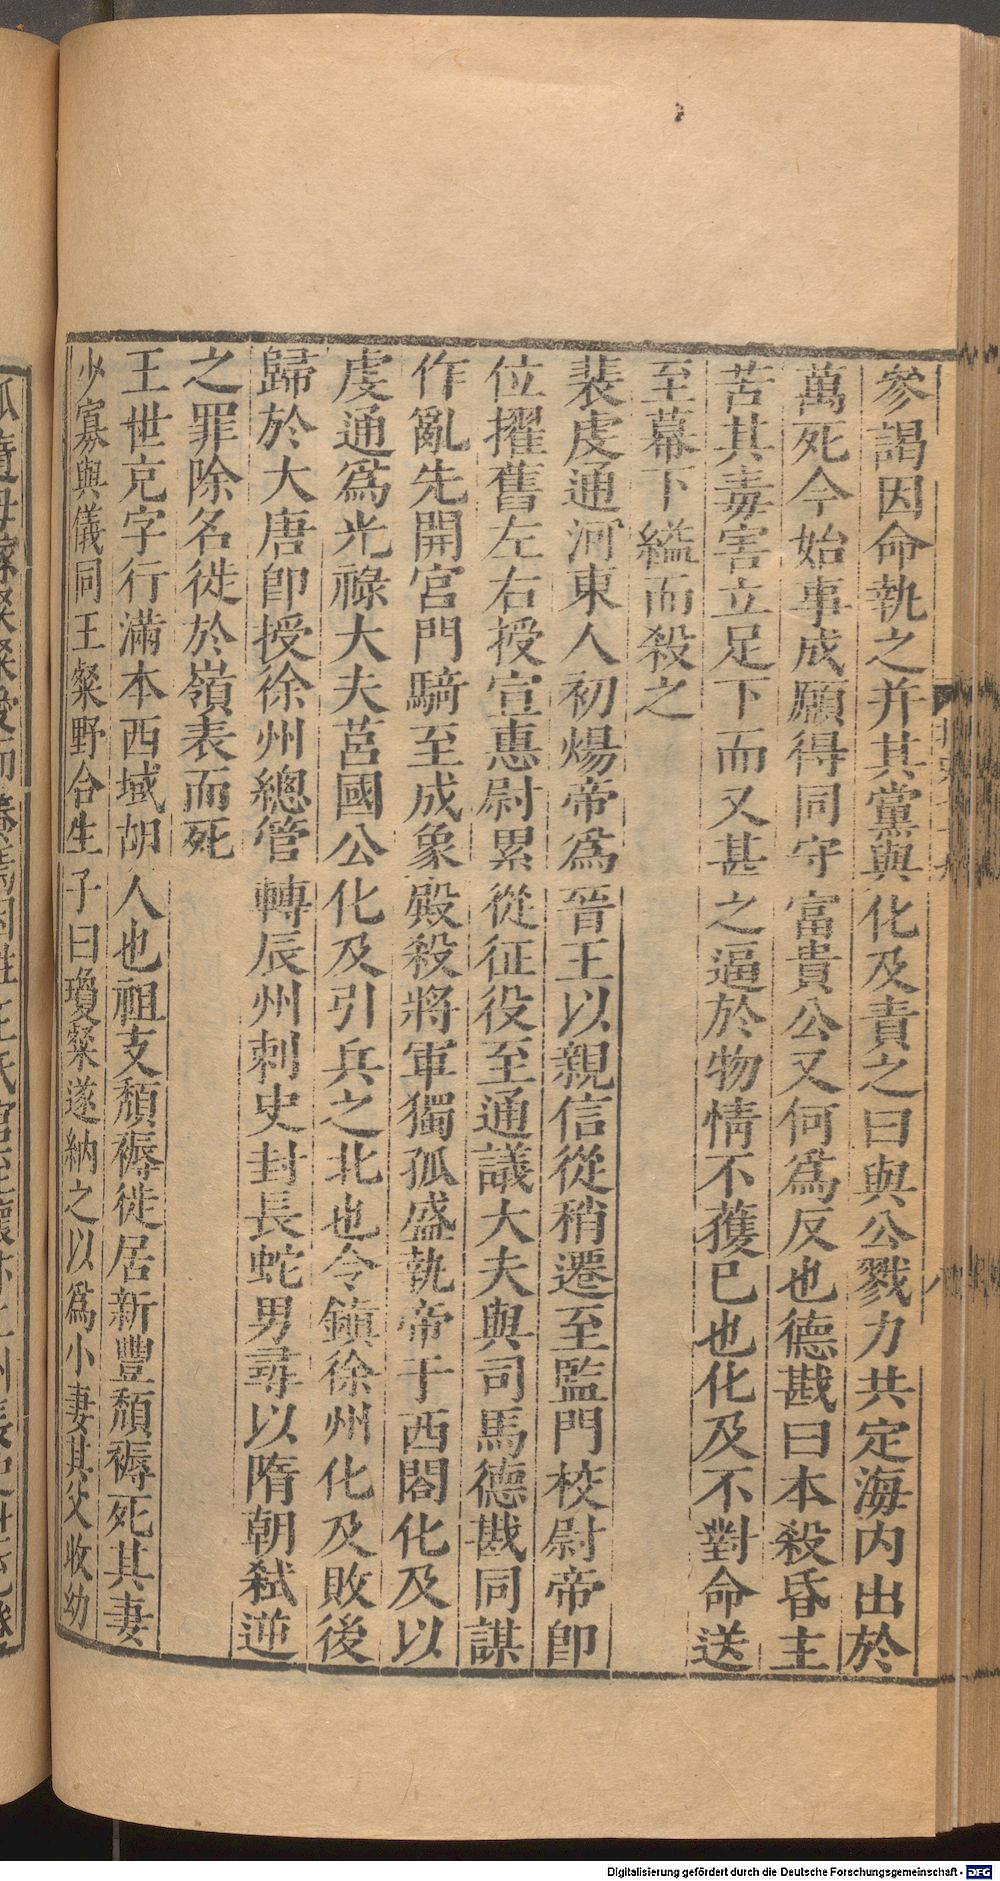 參謁因命執之并其黨與化及責之曰與公戮力共定海内出於
萬死今始事成願得同守富貴公又何爲反也德戡曰本殺昏主
苦其毒害立足下而又甚之逼於物情不獲已也化及不對命送
至幕下縊而殺之
裴虔通河東人初煬帝爲晉王以親信從稍遷至監門校尉帝即
位擢舊左右授宣惠尉累從征役至通議大夫與司馬德戡同謀
作亂先開宮門騎至成象殿殺將軍獨孤盛執帝于西閤化及以
虔通爲光祿大夫莒國公化及引兵之北也令鎮徐州化及敗後
歸於大唐即授徐州總管轉辰州刺史封長蛇男尋以隋朝弒逆
之罪除名徙於嶺表而死
王世充字行滿本西域胡人也祖支頹褥徙居新豐頹褥死其妻
少寡與儀同王粲野合生子曰瓊粲遂納之以爲小妻其父收幼
Digitalisierung gefördert durch die Deutsche Forschungsgemeinschaft - DFG